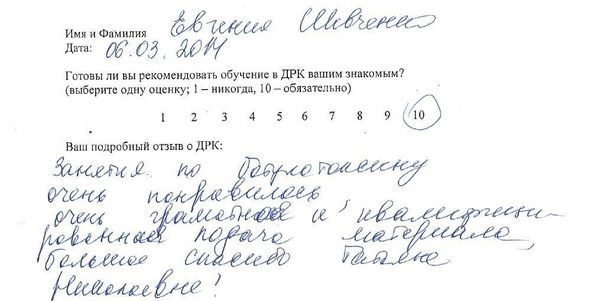 Имя и Фамилия Евгения Шевченко
Дата: 06.03.2014
Готовы ли вы рекомендовать обучение в ДРК вашим знакомым?
(выберите одну оценку; 1 – никогда, 10 – обязательно)
1 2 3 4 5 6 7 8 9 10
Ваш подробный отзыв о ДРК:
Занятия по ботулотоксину
очень понравились
очень грамотная и квалифици-
рованная подача материала
Большое спасибо Татьяне
Николаевне!